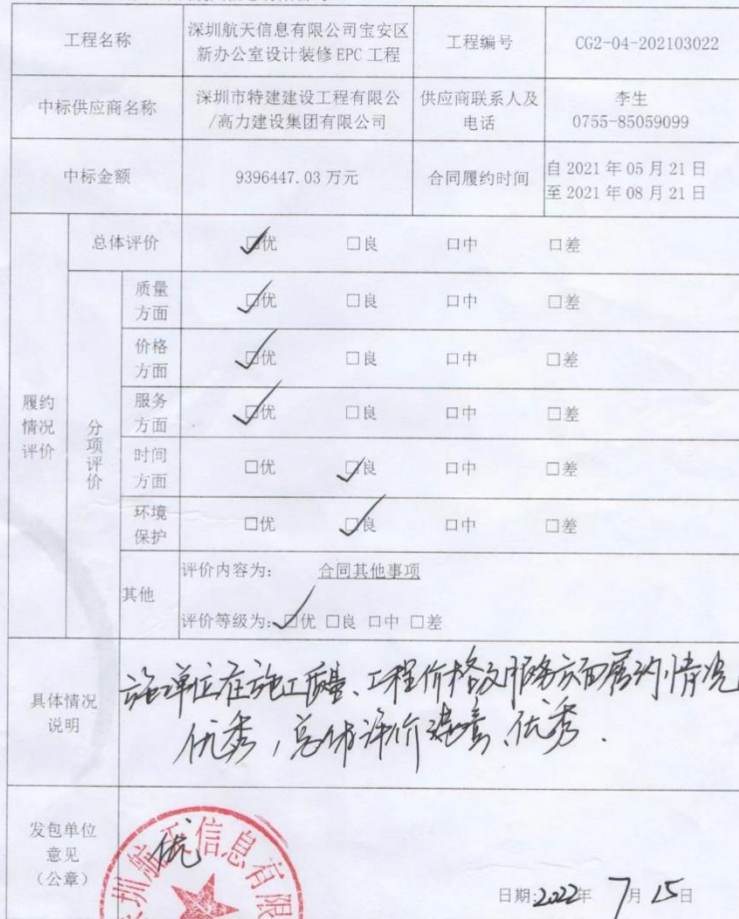 工程名称
深圳航天信息有限公司宝安区
新办公室设计装修 EPC 工程
工程编号
CG2-04-202103022
中标供应商名称
深圳市特建建设工程有限公
/高力建设集团有限公司
供应商联系人及
电话
李生
0755-85059099
中标金额
9396447.03 万元
合同履约时间
自 2021 年 05 月 21 日
至 2021 年 08 月 21 日
履约
情况
评价
总体评价
☑优 □良 口中 口差
分项评价
质量
方面
☑优 □良 口中 □差
价格
方面
☑优 □良 口中 □差
服务
方面
☑优 □良 口中 □差
时间
方面
□优 ☑良 口中 □差
环境
保护
□优 ☑良 口中 □差
其他
评价内容为: 合同其他事项
评价等级为: ☑优 □良 口中 □差
具体情况
说明
施工单位在施工质量、工程价格及服务方面履约情况
优秀,总体评价 优秀.
发包单位
意见
(公章)
优
深圳航天信息有限
日期:2022年 7月15日